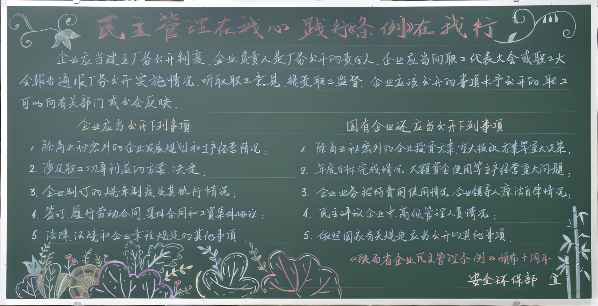 民主管理在我心 践行《条例》在我行
企业应当建立厂务公开制度,企业负责人是厂务公开的责任人,企业应当向职工代表大会或职工大
会报告通报厂务公开实施情况,听取职工意见,接受职工监督,企业应该公开的事项未予公开的,职工
可以向有关部门或工会反映。
企业应当公开下列事项
国有企业还应当公开下列事项
1、除商业秘密外的企业发展规划和生产经营情况;
2、涉及职工切身利益的方案、决定;
3、企业制订的规章制度及其执行情况;
4、签订、履行劳动合同、集体合同和工资集体协议;
5、法律、法规和企业章程规定的其他事项
1、除商业秘密外的企业投资方案、重大决策
2、年度目标完成情况、大额资金使用等生产经营重大问题;
3、企业业务招待费用使用情况、企业领导人廉洁自律情况;
4、民主评议企业中高级管理人员情况;
5、依照国家有关规定应当公开的其他事项
《陕西省企业民主管理条例》颁布十周年
安全环保部 宣